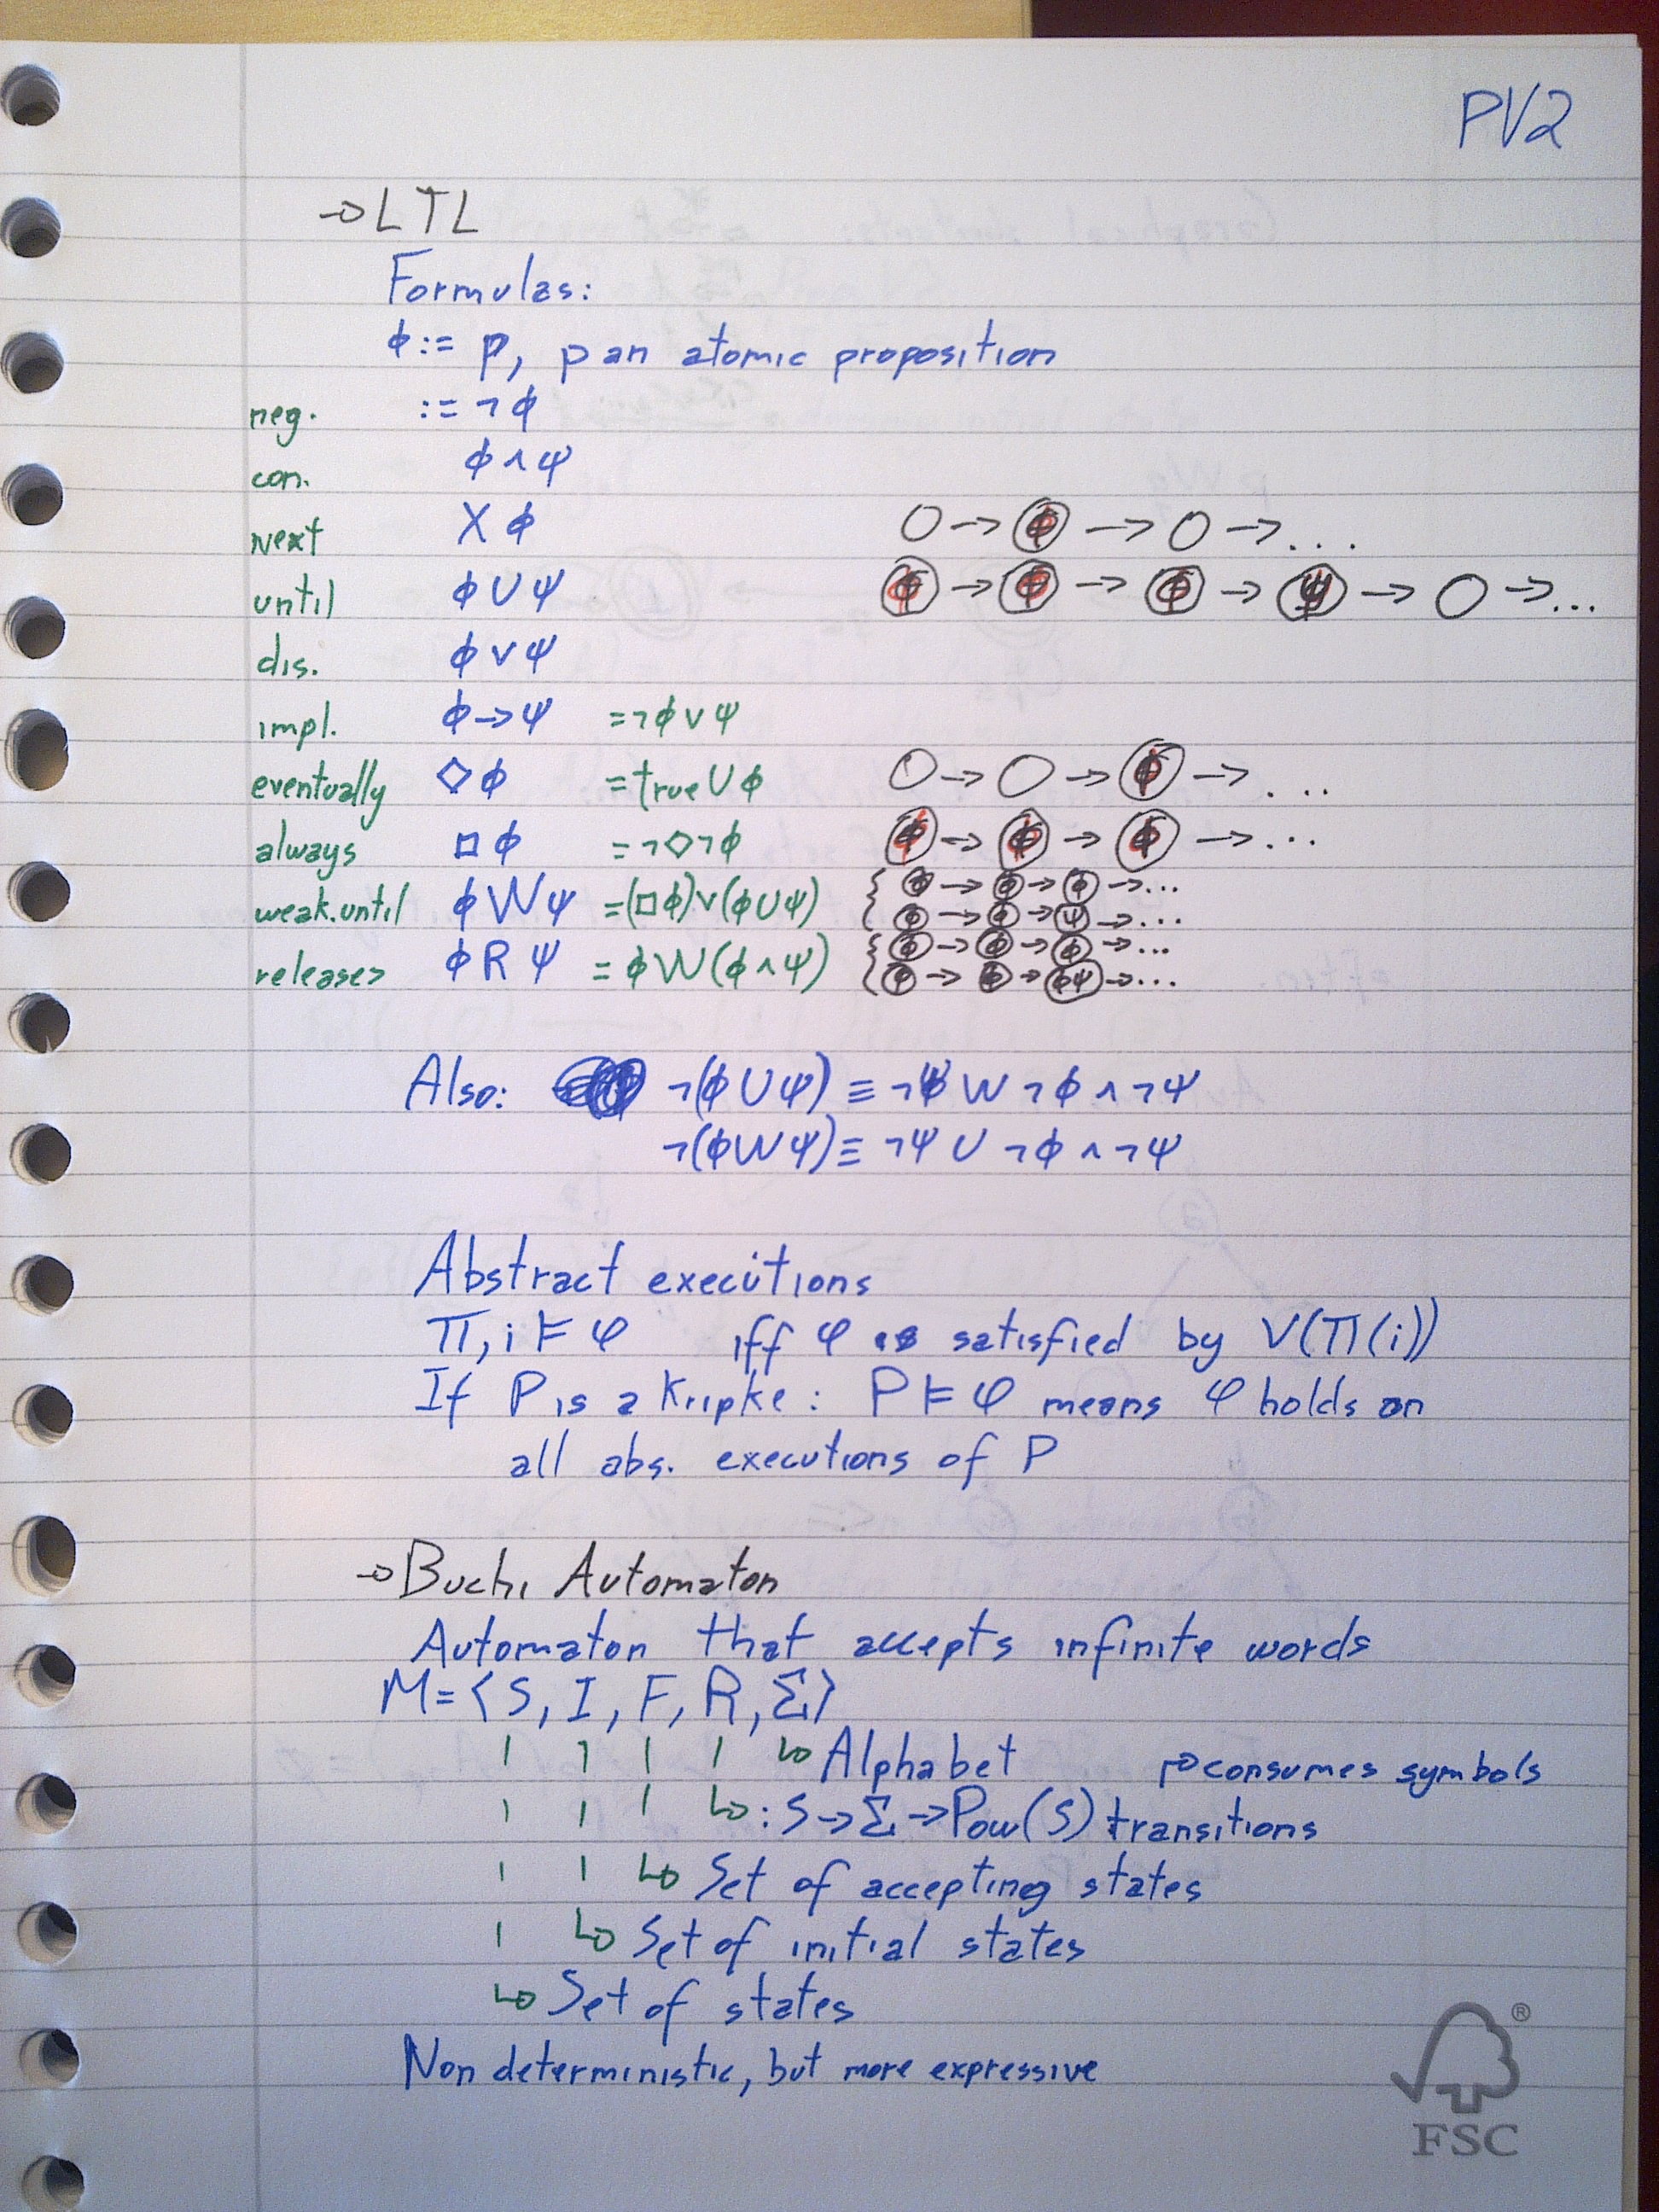 PV2
→LTL
Formulas:
ϕ:= p, p an atomic proposition
neg. := ¬ϕ
con. ϕ∧ψ
Next Xϕ O→ϕ→O→...
until ϕUψ ϕ→ϕ→ϕ→ψ→O→...
dis. ϕ∨ψ
impl. ϕ→ψ =¬ϕ∨ψ
eventually ◇ϕ =trueUϕ O→O→ϕ→...
always □ϕ =¬◇¬ϕ ϕ→ϕ→ϕ→...
weak.until ϕWψ =(□ϕ)∨(ϕUψ) { ϕ→ϕ→ϕ→...
ϕ→ϕ→ψ→...
releases ϕRψ =ϕW(ϕ∧ψ) { ϕ→ϕ→ϕ→...
ϕ→ϕ→ϕψ→...
Also: ¬(ϕUψ)≡¬ψW¬ϕ∧¬ψ
¬(ϕWψ)≡¬ψU¬ϕ∧¬ψ
Abstract executions
Π,i⊨φ iff φ is satisfied by V(Π(i))
If P is a Kripke: P⊨φ means φ holds on
all abs. executions of P
→Buchi Automaton
Automaton that accepts infinite words
M=⟨S, I, F, R, Σ⟩
Alphabet →consumes symbols
:S→Σ→Pow(S) transitions
Set of accepting states
Set of initial states
Set of states
Non deterministic, but more expressive
®
FSC